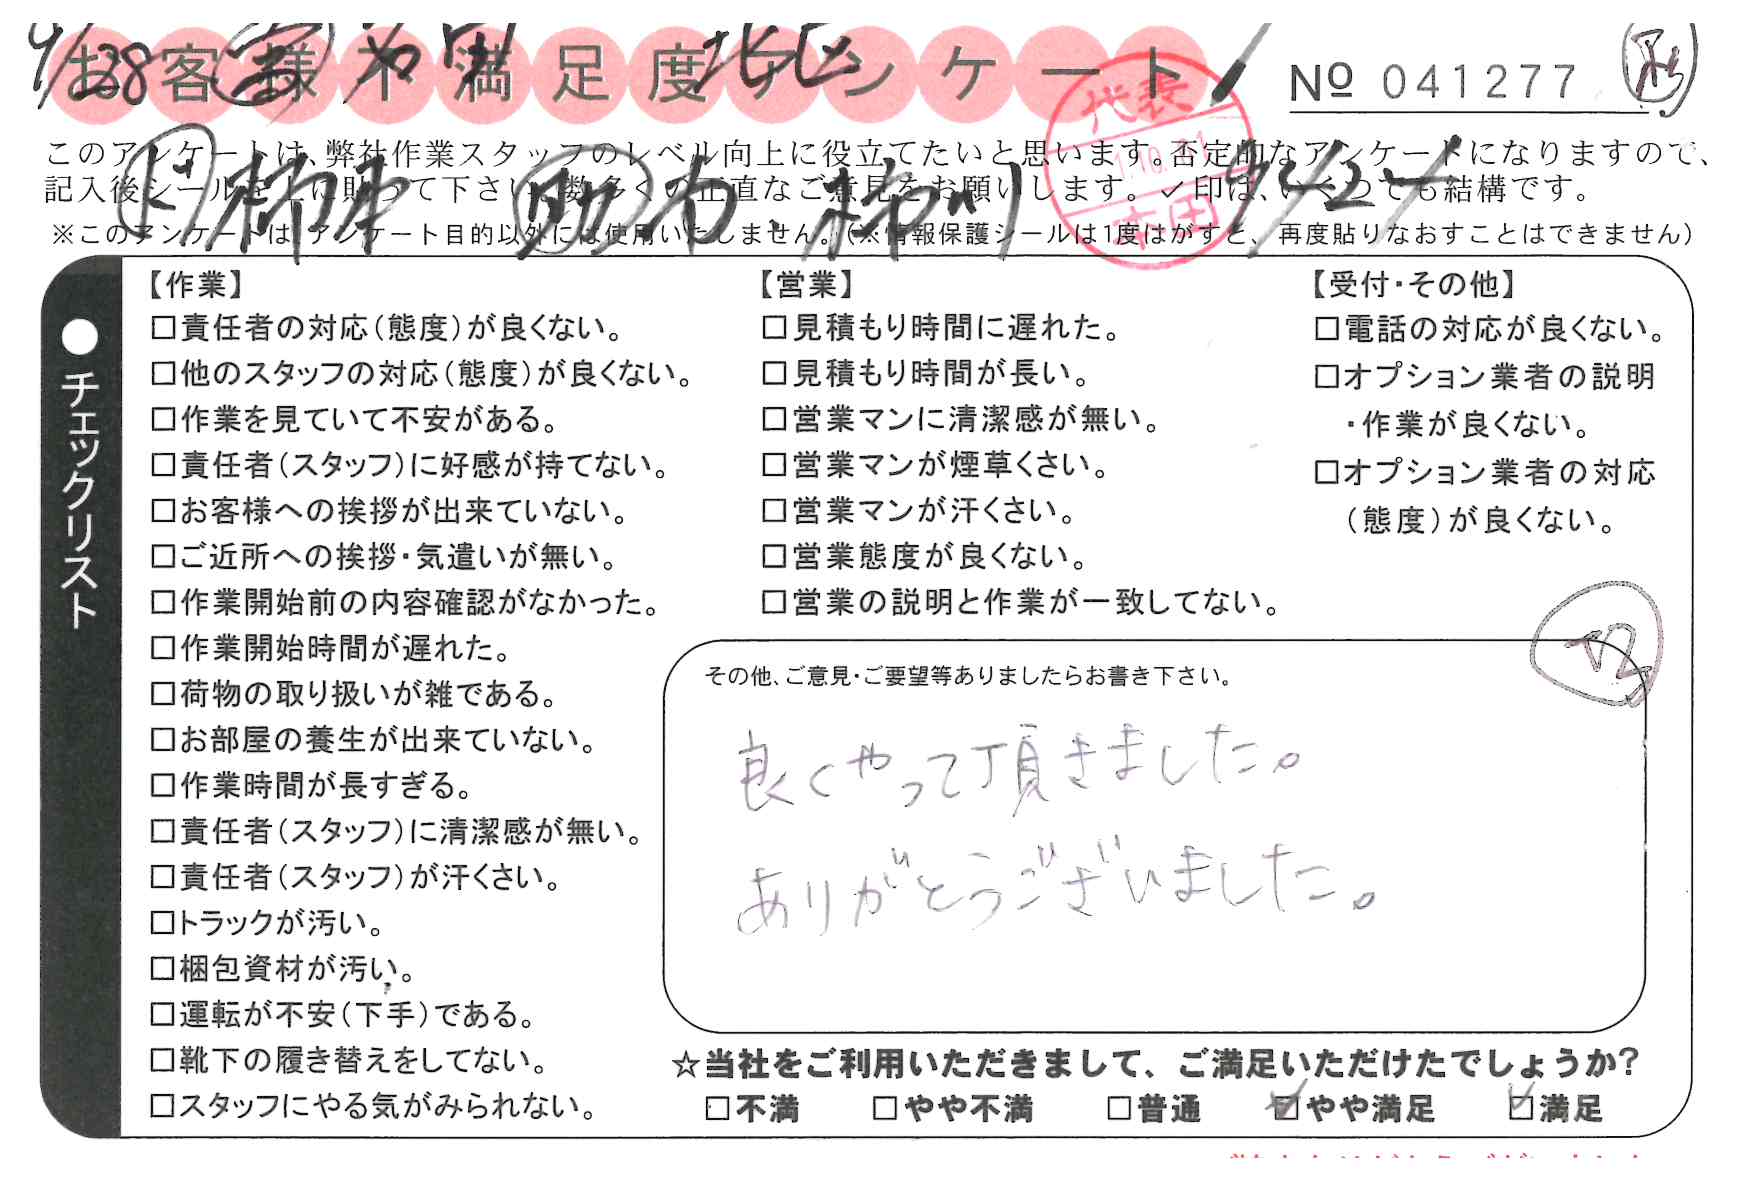 お客様不満足度アンケート
№ 041277
このアンケートは、弊社作業スタッフのレベル向上に役立てたいと思います。否定的なアンケートになりますので、
記入後シールを上に貼って下さい。数多くの正直なご意見をお願いします。✓印は、いくつでも結構です。
※このアンケートは、アンケート目的以外には使用いたしません。（※情報保護シールは1度はがすと、再度貼りなおすことはできません）
9/28
北区
代表
本田
●チェックリスト
【作業】
□責任者の対応（態度）が良くない。
□他のスタッフの対応（態度）が良くない。
□作業を見ていて不安がある。
□責任者（スタッフ）に好感が持てない。
□お客様への挨拶が出来ていない。
□ご近所への挨拶・気遣いが無い。
□作業開始前の内容確認がなかった。
□作業開始時間が遅れた。
□荷物の取り扱いが雑である。
□お部屋の養生が出来ていない。
□作業時間が長すぎる。
□責任者（スタッフ）に清潔感が無い。
□責任者（スタッフ）が汗くさい。
□トラックが汚い。
□梱包資材が汚い。
□運転が不安（下手）である。
□靴下の履き替えをしてない。
□スタッフにやる気がみられない。
【営業】
□見積もり時間に遅れた。
□見積もり時間が長い。
□営業マンに清潔感が無い。
□営業マンが煙草くさい。
□営業マンが汗くさい。
□営業態度が良くない。
□営業の説明と作業が一致してない。
【受付・その他】
□電話の対応が良くない。
□オプション業者の説明
・作業が良くない。
□オプション業者の対応
（態度）が良くない。
その他、ご意見・ご要望等ありましたらお書き下さい。
良くやって頂きました。
ありがとうございました。
☆当社をご利用いただきまして、ご満足いただけたでしょうか？
□不満 □やや不満 □普通 ☑やや満足 ☑満足